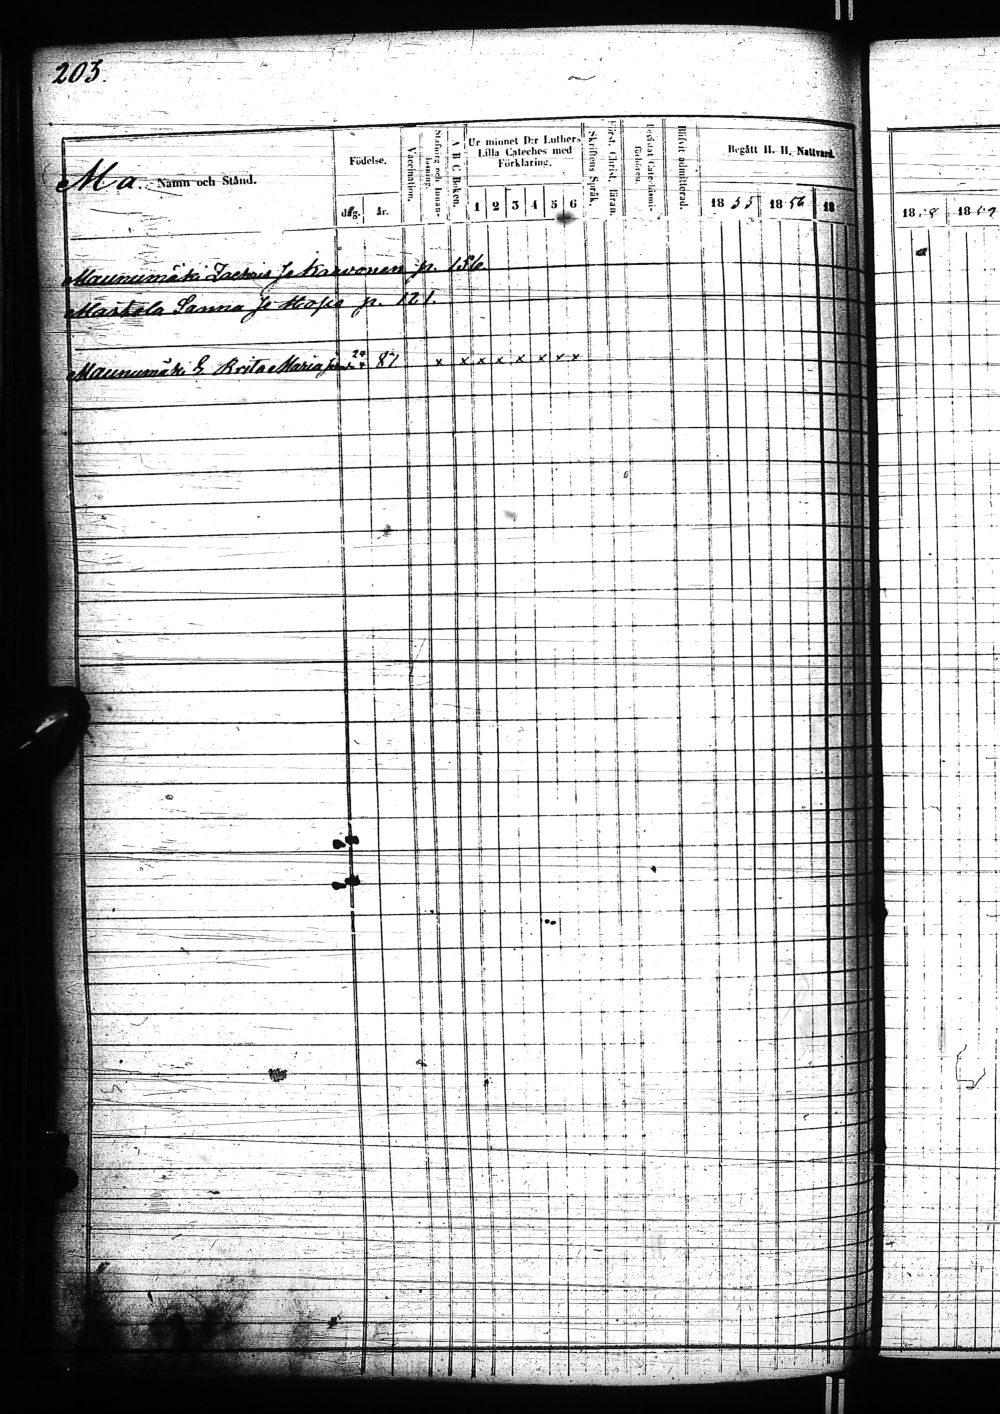 203.
Ma. Namn och Stånd.
Födelse.
dag. år.
Vaccination.
Stafning och Innanläsning.
A B C Boken.
Ur minnet D:r Luthers Lilla Cateches med Förklaring.
1 2 3 4 5 6
Skriftens Språk.
Först. Christ. läran.
Bevistat Catechismiförhören.
Blifvit admitterad.
Begått H. H. Nattvard.
18 55 18 56 18
18 18
Maunumäki Zachris Je Karvonen p. 156.
Maskola Sanna Je Hopa p. 121.
Maunumäki E Brita Maria 24 4 87 x x x x x x x x